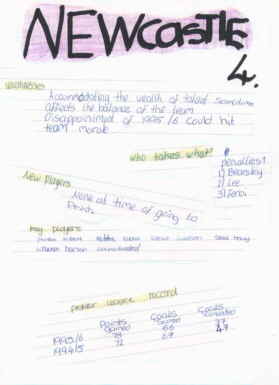 NEWCASTLE
4.
Weaknesses
Accommodating the wealth of talent sometimes
affects the balance of the team
Disappointment of 1995/6 could hit
team morale
Who takes what?
Penalties?
1) Beardsley
2) Lee
3) Ferd.
New Players
None at time of going to
Print.
Key players
Premier League record
Points
Gained
Goals
Scored
Goals
Conceded
1995/6 78 66 37
1994/5 72 67 47